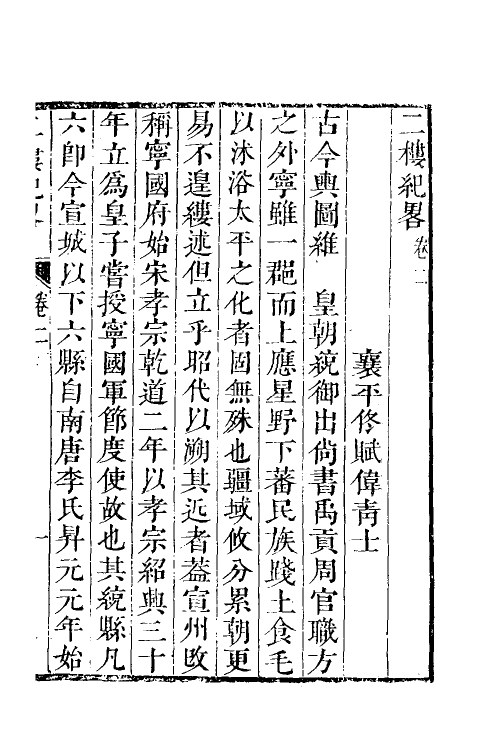 二樓紀畧卷二
襄平佟賦偉靑士
古今輿圖維 皇朝統御出尙書禹貢周官職方
之外寧雖一郡而上應星野下蕃民族踐土食毛
以沐浴太平之化者固無殊也疆域攸分累朝更
易不遑縷述但立乎昭代以溯其近者蓋宣州改
稱寧國府始宋孝宗乾道二年以孝宗紹興三十
年立爲皇子嘗授寧國軍節度使故也其統縣凡
六卽今宣城以下六縣自南唐李氏昇元元年始
二樓紀畧 卷二 一